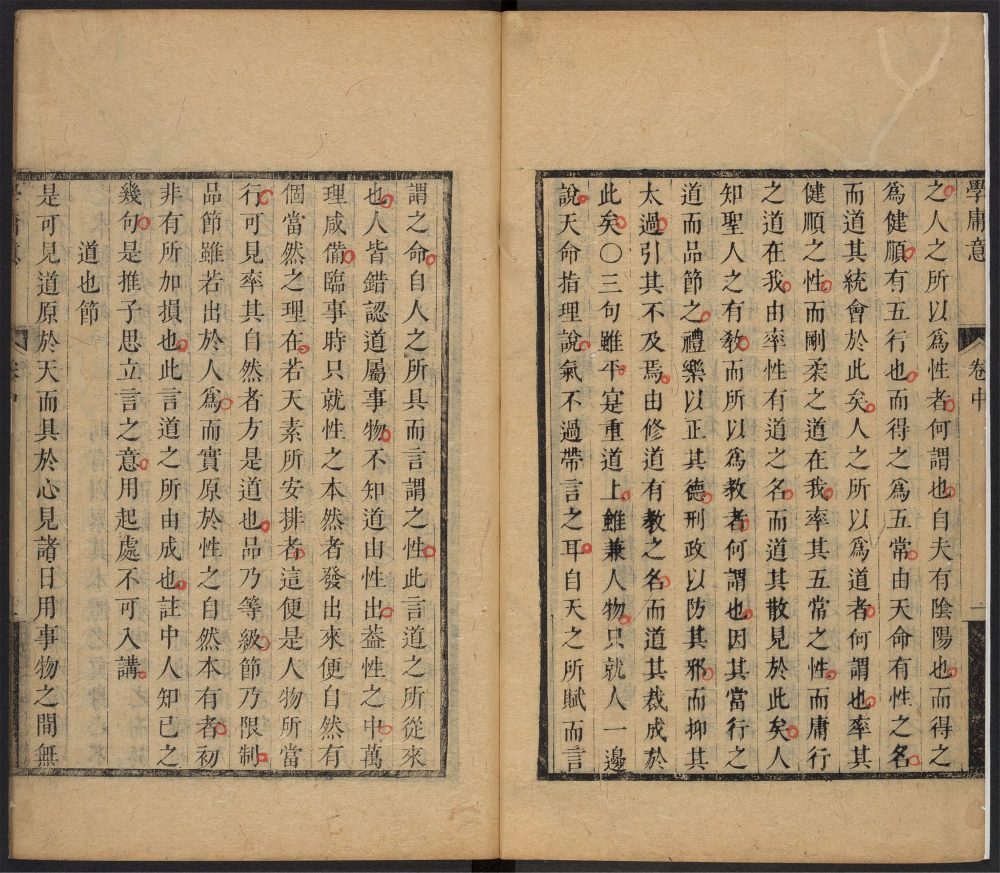 學庸意
卷中
一
之人之所以爲性者何謂也自夫有陰陽也而得之
爲健順有五行也而得之爲五常由天命有性之名
而道其統會於此矣人之所以爲道者何謂也率其
健順之性而剛柔之道在我率其五常之性而庸行
之道在我由率性有道之名而道其散見於此矣人
知聖人之有教而所以爲教者何謂也因其當行之
道而品節之禮樂以正其德刑政以防其邪而抑其
太過引其不及焉由修道有教之名而道其裁成於
此矣〇三句雖平寔重道上雖兼人物只就人一邊
說天命指理說氣不過帶言之耳自天之所賦而言
謂之命自人之所具而言謂之性此言道之所從來
也人皆錯認道屬事物不知道由性出葢性之中萬
理咸備臨事時只就性之本然者發出來便自然有
個當然之理在若天素所安排者這便是人物所當
行可見率其自然者方是道也品乃等級節乃限制
品節雖若出於人爲而實原於性之自然本有者初
非有所加損也此言道之所由成也註中人知已之
幾句是推子思立言之意用起處不可入講
道也節
是可見道原於天而具於心見諸日用事物之間無